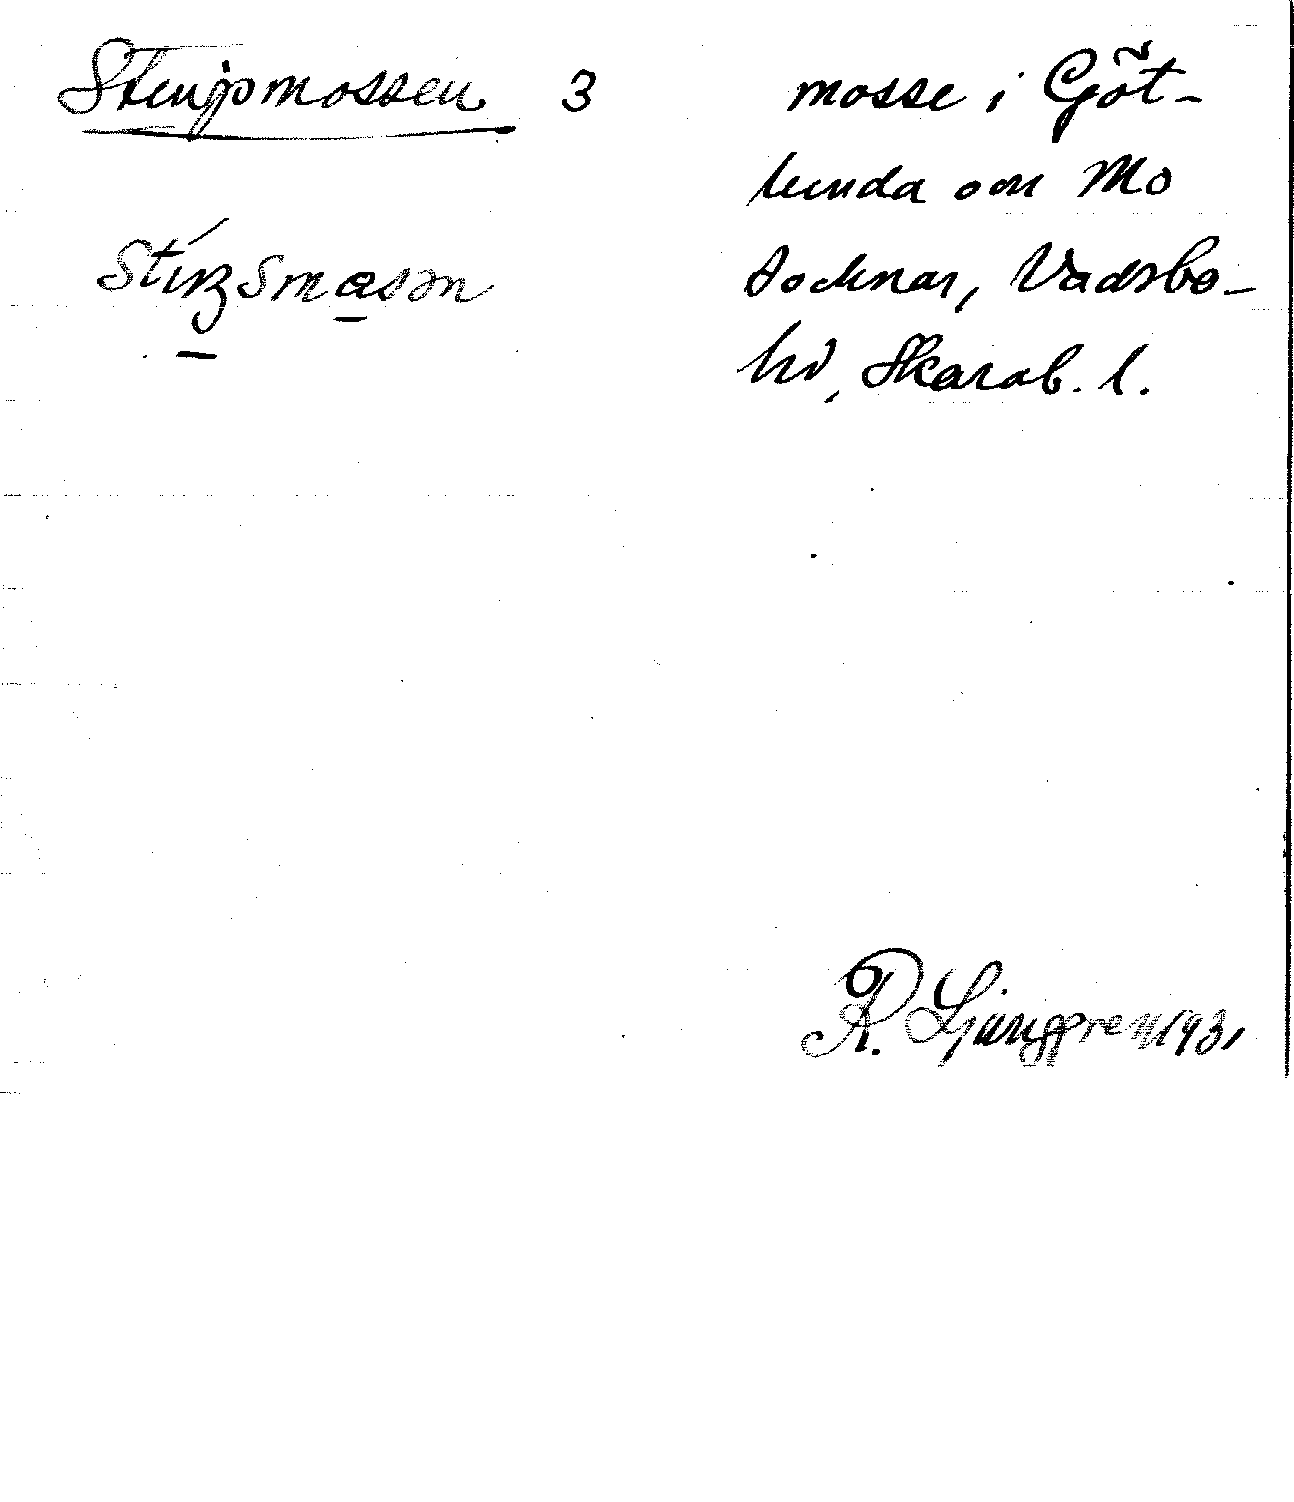 Stengsmossen 3
mosse i Göt-
lunda och Mo
socknar, Vadsbo-
hd, Skarab. l.
R. Ljunggren 1931